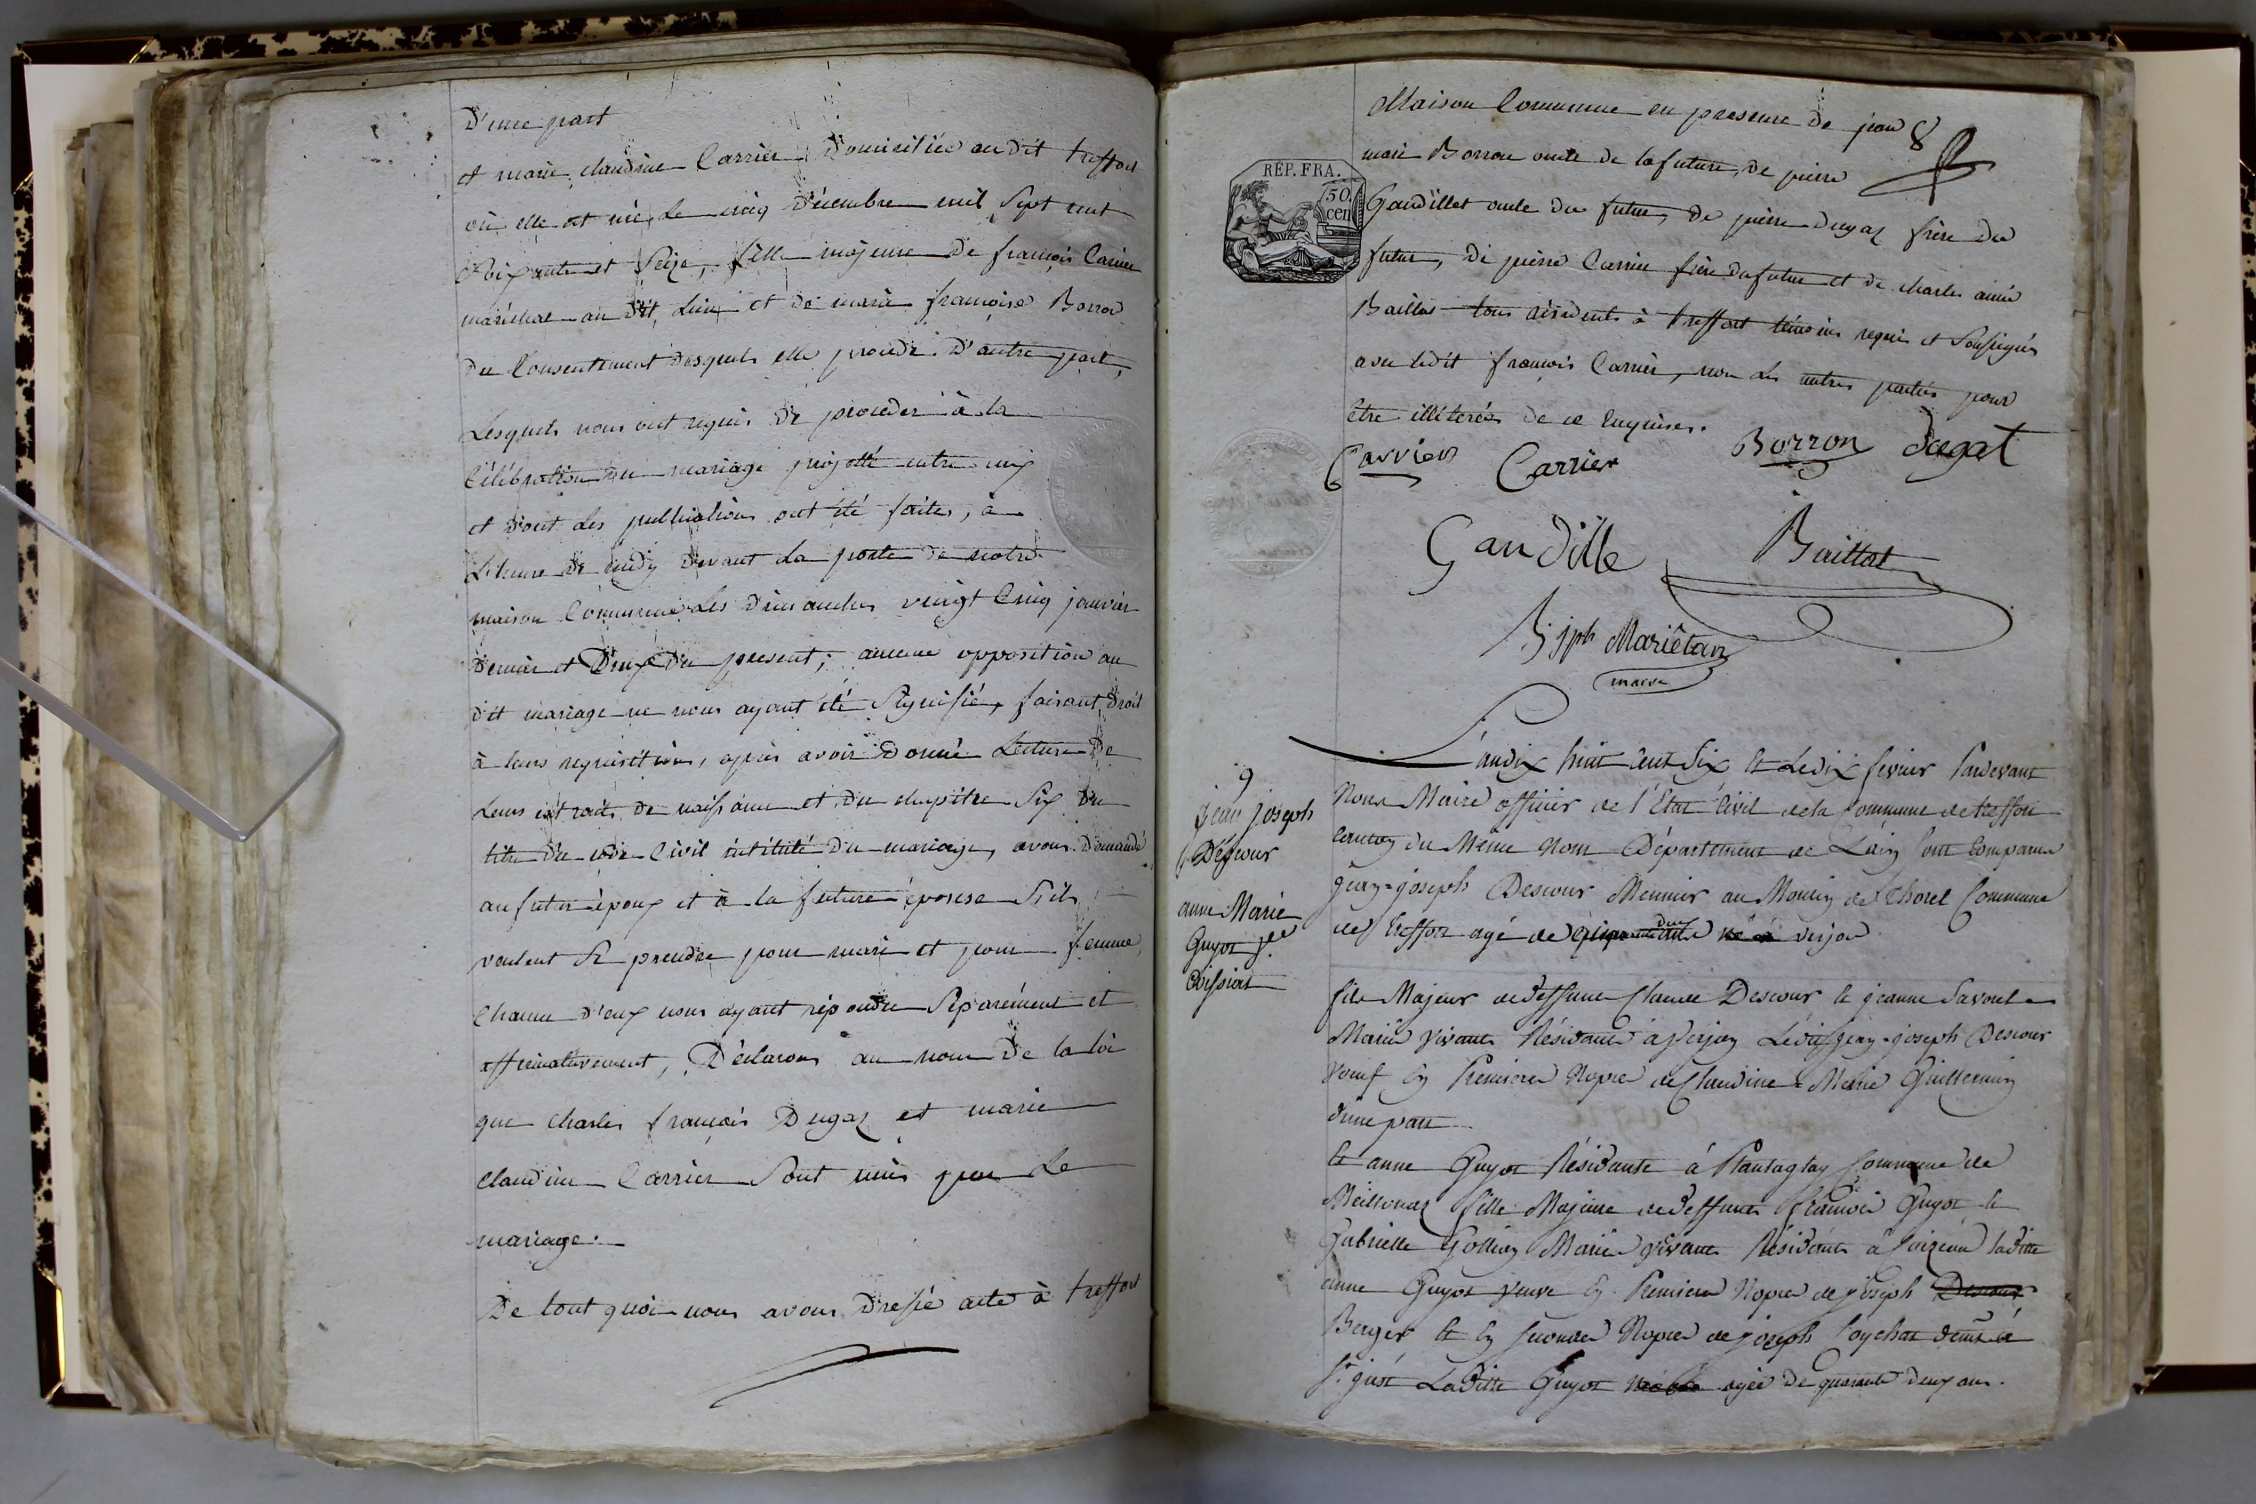 D'une part
et marie claudine Carrier Domiciliée audit treffort
où elle est née, le cinq Décembre mil Sept cent
Soixante et Seize, fille majeure de françois Carrier
maréchal au dit Lieu et de marie françoise Borron
du Consentement desquels elle procede. D'autre part,
Lesquels nous ont requis de proceder à la
Célébration du mariage projetté entre eux
et dont les publications ont été faites, à
L'heure de midy devant la porte de notre
maison Commune les dimanches vingt Cinq janvier
dernier et Deux du present; aucune opposition au
dit mariage ne nous ayant été Signifiée, faisant Droit
à leurs requisitions, après avoir donné Lecture de
Leurs extraits de naissance et du chapitre Six du
titre du code Civil intitulé du mariage, avons demandé
au futur époux et à la future épouse S'ils
veulent Se prendre pour mari et pour femme,
Chacun d'eux nous ayant répondu Séparément et
affirmativement, Déclarons au nom de la loi
que charles françois Dugaz et marie
claudine Carrier Sont unis par Le
mariage.
De tout quoi nous avons Dressé acte à treffort
Maison Commune en presence de jean 8
marie Borron oncle de la future, de pierre
REP. FRA.
50 cen
Gaudillet oncle du futur, de pierre dugaz frère du
futur, de pierre Carrier frère du futur et de charles aimé
Baillat tous résidents à treffort témoins requis et Soussignés
avec ledit françois Carrier, non les autres parties pour
être illiterées de ce enquises.
Carrier Carrier Borron dugat
Gaudille Baillat
jph Mariêtan
maire
9
jean joseph
Descour
anne Marie
Guyot
L'an dix huit cent Six et Le dix fevrier Pardevant
Nous Maire officier de l'Etat Civil de la Commune de treffort
canton du Meme Nom Département de L'ain Sont Comparus
jean-joseph Descour Meunier au Moulin de Commune
de treffort agé de verjon
fils Majeur de deffunt Claude Descour et jeanne Savoret
Mariée vivante Résidante à verjon Ledit jean-joseph Descour
veuf En Premiere Nopce de Claudine-Marie Guillermin
d'une part
Et anne Guyot Résidante à Commune de
Meillonnaz fille Majeure de deffunt françois Guyot et
Gabrielle Mariée vivante Résidante à laditte
anne Guyot veuve En Premiere Nopce de joseph
Berger, Et En Seconde Nopce de joseph à
St. just Laditte Guyot agée de quarante deux ans.